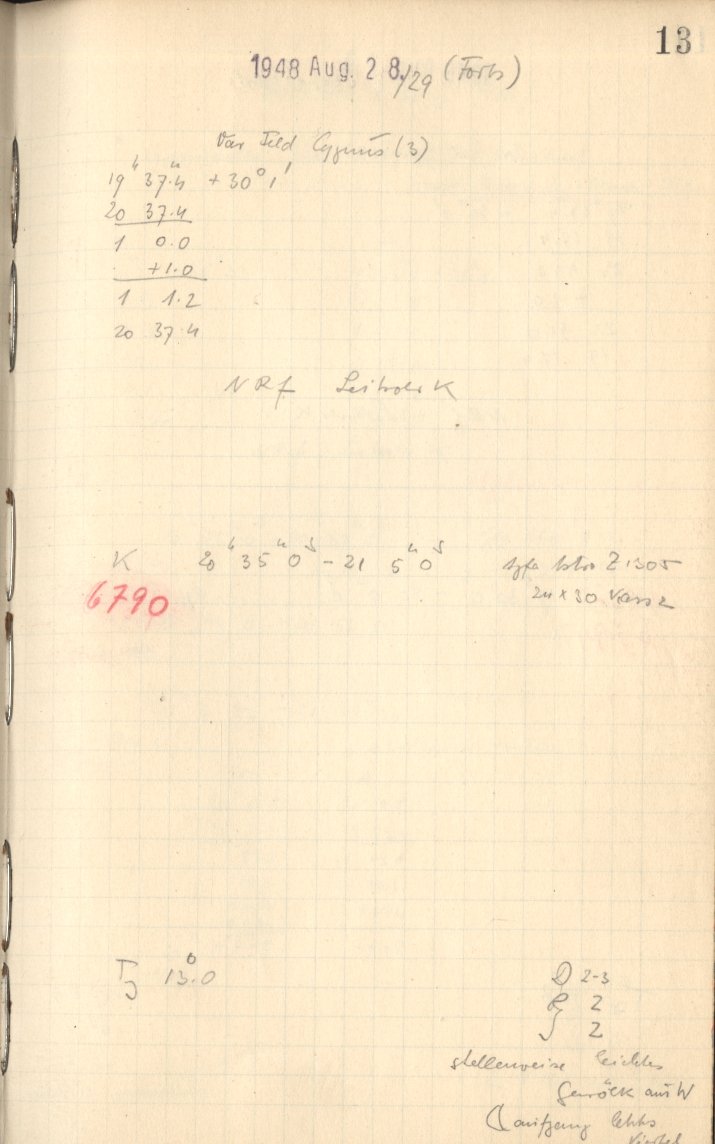 13
1948 Aug. 28./29 (Forts)
Var Feld Cygnus (3)
19ʰ 37.4ᵐ +30° 1'
20 37.4
1 0.0
+1.0
1 1.2
20 37.4
NRf Leitrohr K
K 20ʰ 35ᵐ 0ˢ - 21 5ᵐ 0ˢ Agfa Astro Z 1305
6790
24 x 30
T 13.0°
D 2-3
R 2
J 2
stellenweise leichtes
Gewölk aus W
aufgang letztes
Viertel